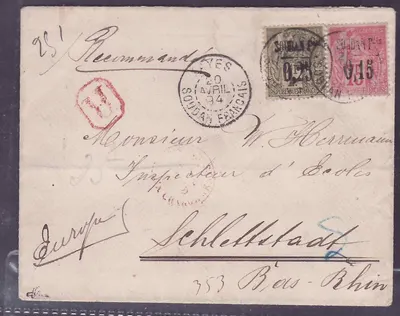 251
Recommandé
KAYES
20
AVRIL
94
SOUDAN FRANÇAIS
SOUDAN Fais
0,25
SOUDAN Fais
0,15
R
Monsieur W. Herrmann
Inspecteur d'Ecoles
Europe
Schlettstadt
353 Bas-Rhin